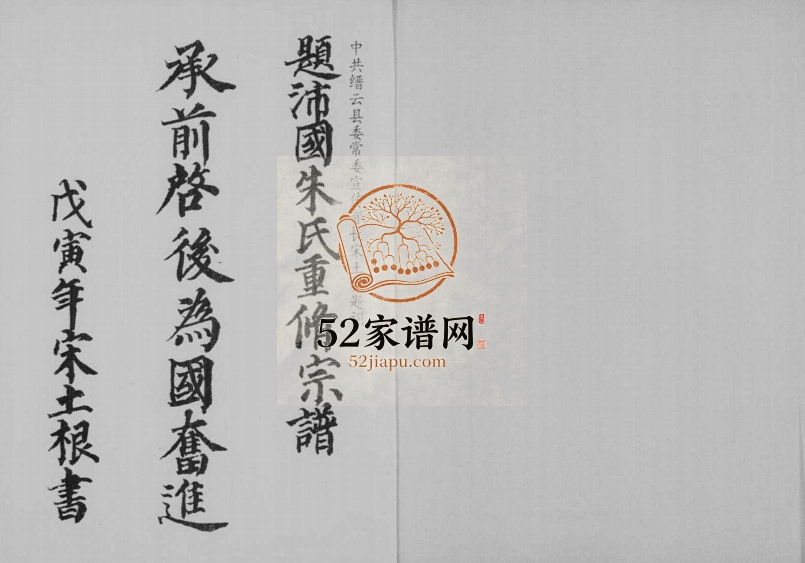 中共缙云县委常委宣
題沛國朱氏重脩宗譜
承前啓後為國奮進
戊寅年宋土根書
52家谱网
52jiapu.com